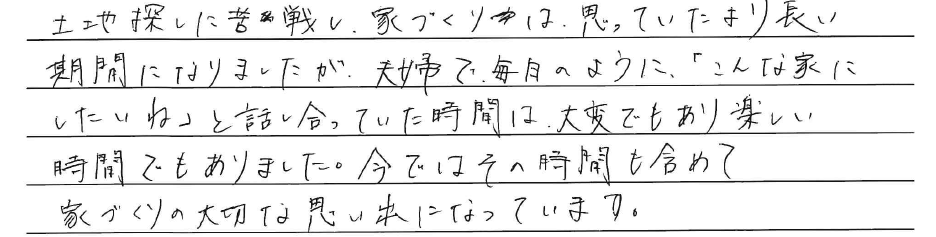 土地探しに苦戦し、家づくりは、思っていたより長い
期間になりましたが、夫婦で、毎月のように、「こんな家に
したいね」と話し合っていた時間は、大変でもあり楽しい
時間でもありました。今ではその時間も含めて
家づくりの大切な思い出になっています。